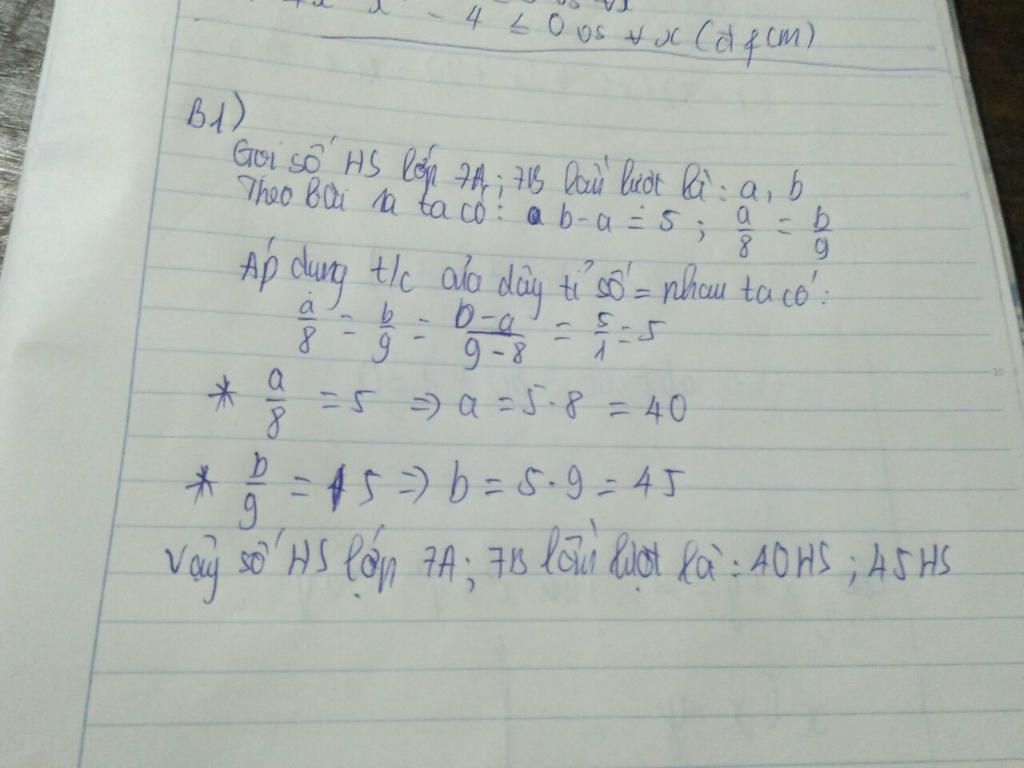 - 4 ≤ 0 os ∀x (đfcm)
B1)
Gọi số HS lớp 7A; 7B lần lượt là: a, b
Theo bài ra ta có: b-a = 5; a/8 = b/9
Áp dung t/c của dãy tỉ số = nhau ta có:
a/8 = b/9 = b-a/9-8 = 5/1 = 5
* a/8 = 5 => a = 5.8 = 40
* b/9 = 5 => b = 5.9 = 45
Vậy số HS lớp 7A; 7B lần lượt là: 40HS; 45HS